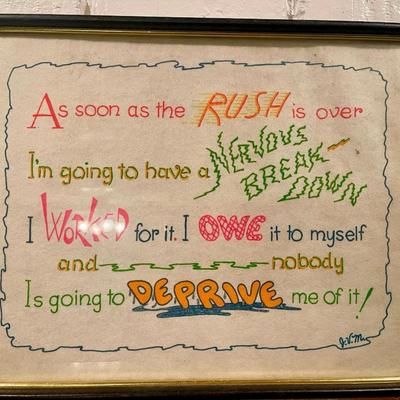 As soon as the RUSH is over
I'm going to have a NERVOUS BREAK-DOWN
I WORKED for it. I OWE it to myself
and nobody
Is going to DEPRIVE me of it!
J.V.M.